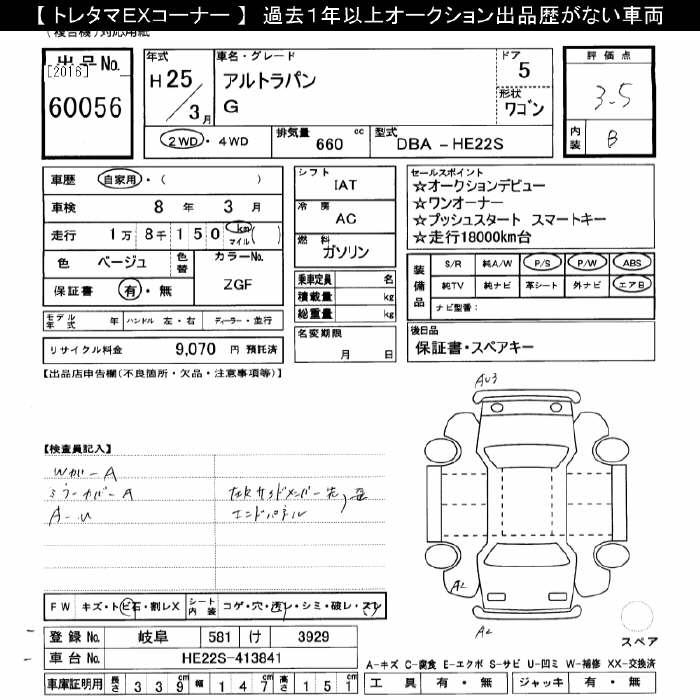 【 トレタマEXコーナー 】 過去1年以上オークション出品歴がない車両
(複合機)対応用紙
出品No.
[2016]
60056
年式
H 25 / 3 月
車名・グレード
アルトラパン
G
ドア
5
形状
ワゴン
2WD・4WD
排気量 660 cc
型式 DBA - HE22S
評価点
3.5
内装 B
車歴 自家用・( )
車検 8 年 3 月
走行 1万 8千 1 5 0 km マイル ( )
色 ベージュ 色替
カラーNo. ZGF
保証書 有・無
モデル年式 年 ハンドル 左・右 ディーラー・並行
リサイクル料金 9,070 円 預託済
シフト IAT
冷房 AC
燃料 ガソリン
乗車定員 名
積載量 kg
総重量 kg
名変期限
月 日
セールスポイント
☆オークションデビュー
☆ワンオーナー
☆プッシュスタート スマートキー
☆走行18000km台
装備品
S/R 純A/W P/S P/W ABS
純TV 純ナビ 革シート 外ナビ エアB
ナビ型番:
後日品
保証書・スペアキー
【出品店申告欄(不良箇所・欠品・注意事項等)】
【検査員記入】
Wガバ-A
ミラーカバーA
A-U
エンドパネル
AU3
A2
A2
FW キズ・トビ石・割レX
シート内装 コゲ・穴・汚レ・シミ・破レ・スレ
登録No. 岐阜 581 け 3929
車台No. HE22S-413841
車庫証明用 長さ 3 3 9 cm 幅 1 4 7 cm 高さ 1 5 1 cm
スペア
A-キズ C-腐食 E-エクボ S-サビ U-凹ミ W-補修 XX-交換済
工具 有・無 ジャッキ 有・無